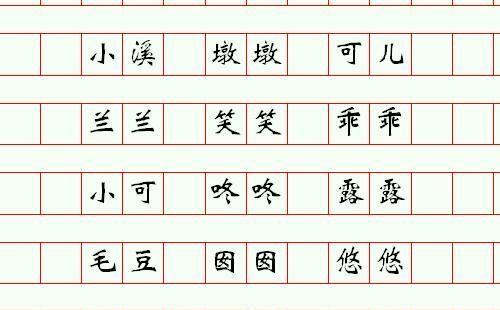 小溪 墩墩 可儿
兰兰 笑笑 乖乖
小可 咚咚 露露
毛豆 囡囡 悠悠